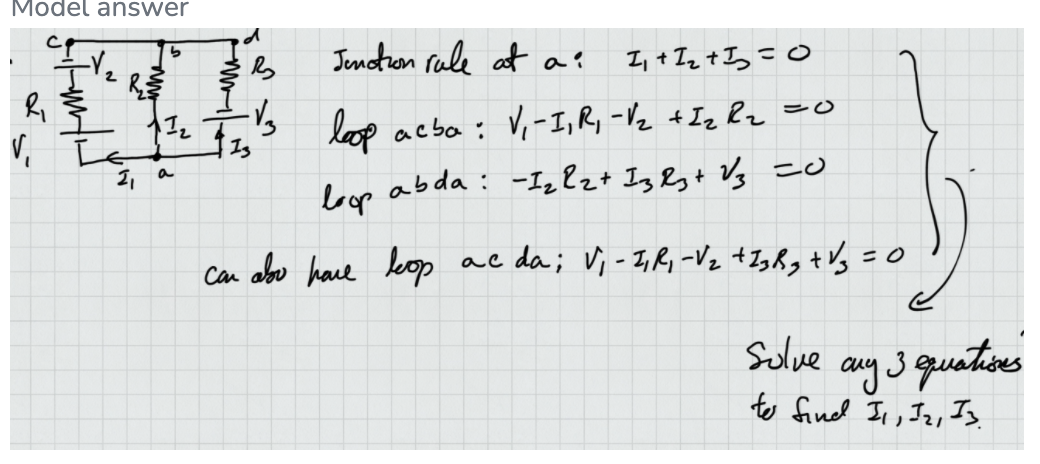 Model answer
c b d
V₂ R₂ R₃
R₁ I₂ V₃
V₁ I₃
I₁ a
Junction rule at a: I₁ + I₂ + I₃ = 0
loop acba: V₁ - I₁R₁ - V₂ + I₂R₂ = 0
loop abda: -I₂R₂ + I₃R₃ + V₃ = 0
can also have loop acda; V₁ - I₁R₁ - V₂ + I₃R₃ + V₃ = 0
Solve any 3 equations
to find I₁, I₂, I₃.